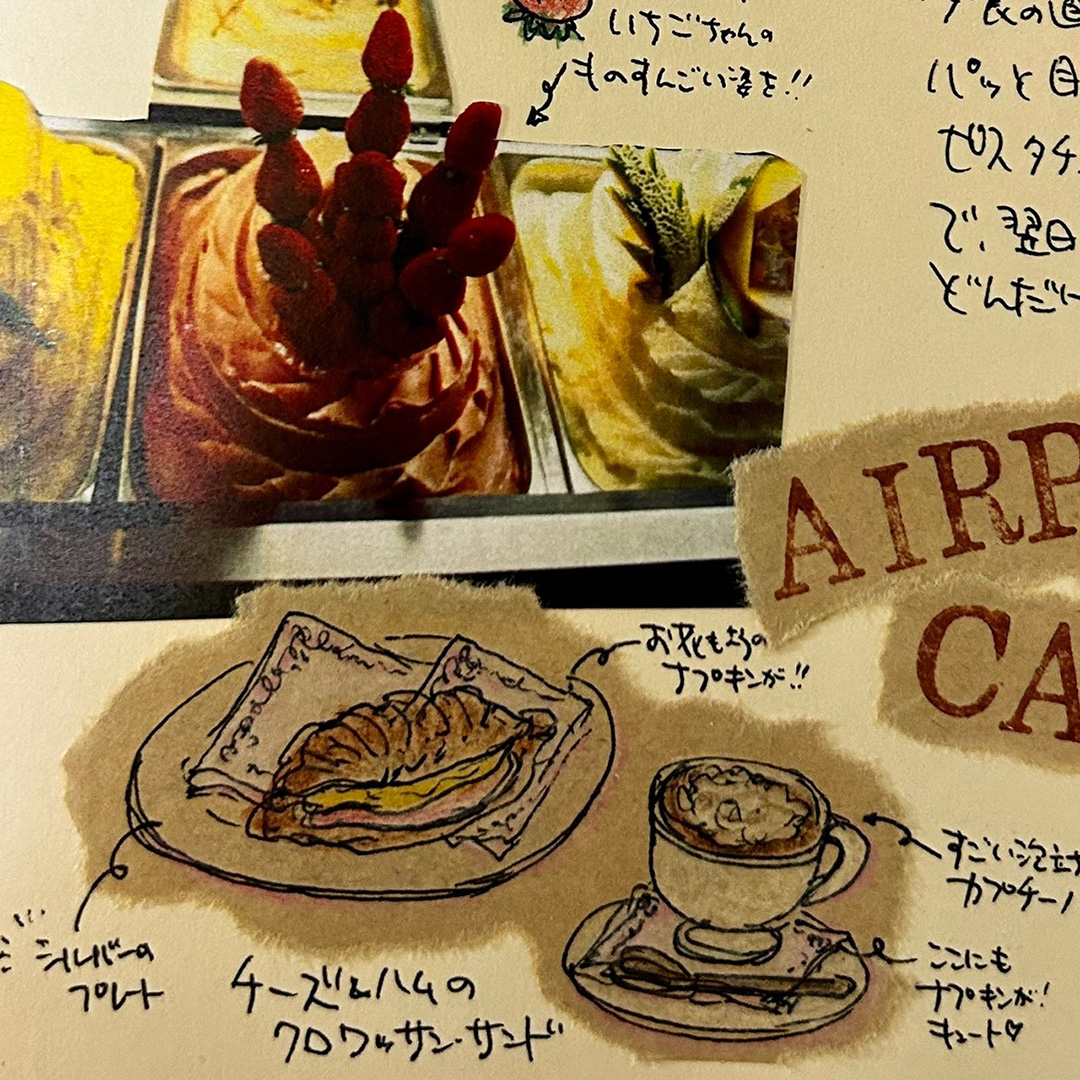 いちごちゃんの
ものすんごい姿を!!
パッと目
ピスタチ
で、翌日
どんだけ
AIRP
CA
お花もようの
ナプキンが!!
すごい泡立ち
カプチーノ
シルバーの
プレート
チーズ&ハムの
クロワッサン・サンド
ここにも
ナプキンが!
キュート♡